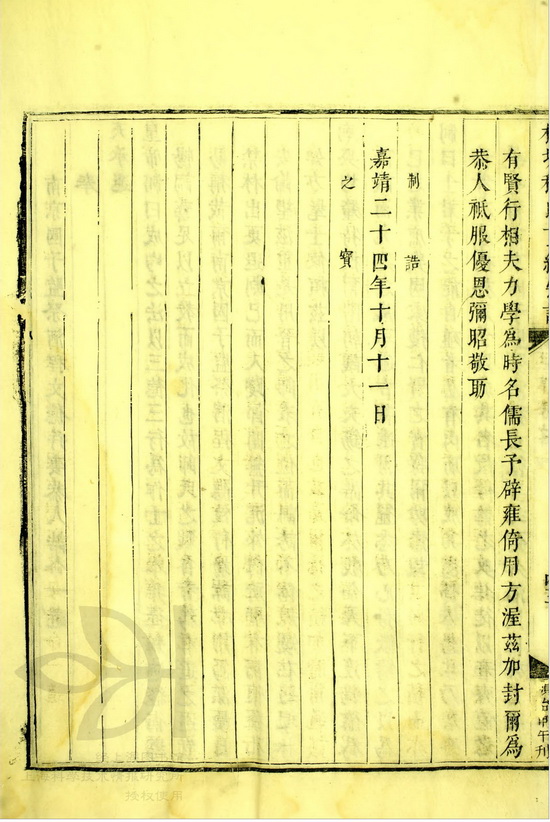 有賢行相夫力學為時名儒長予辟雍倚用方渥茲加封爾為
恭人祇服優恩彌昭敬勖
制誥
嘉靖二十四年十月十一日
之寶
授权使用